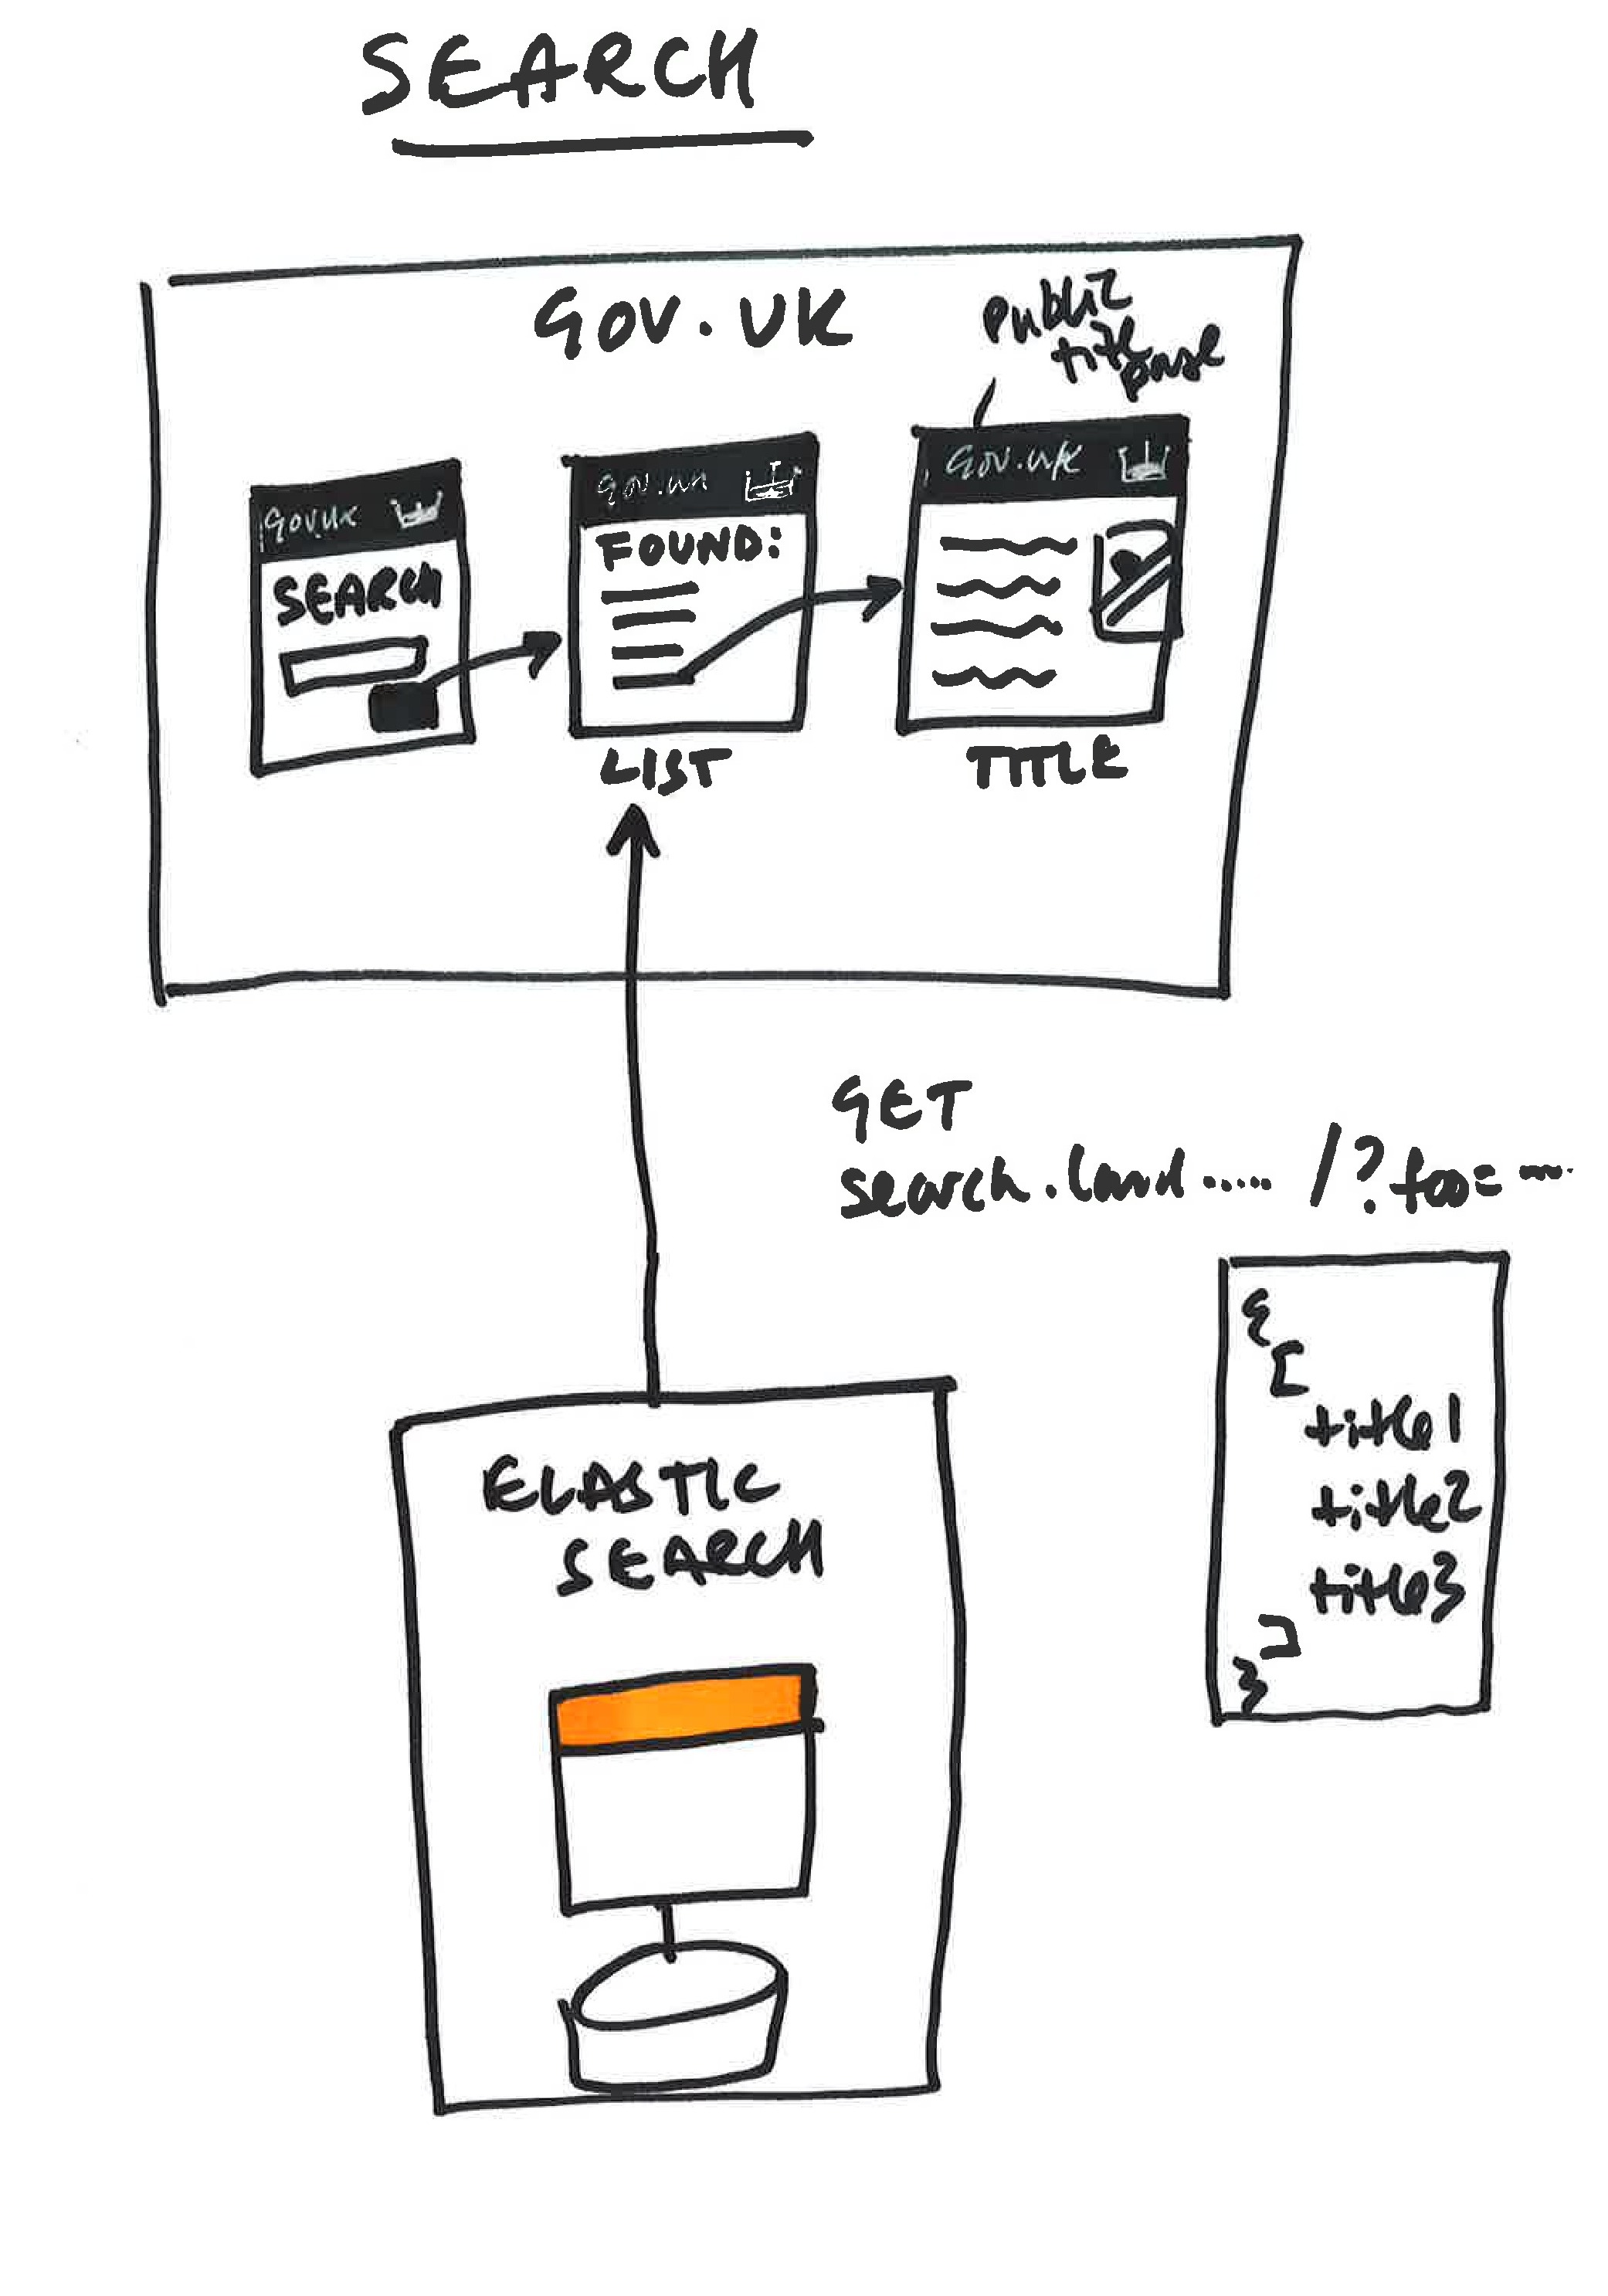 SEARCH
GOV.UK
public
title
page
gov.uk
gov.uk
gov.uk
SEARCH
FOUND:
LIST
TITLE
GET
search.land ..... /?foo= ....
{
[
title1
title2
title3
]
}
ELASTIC
SEARCH